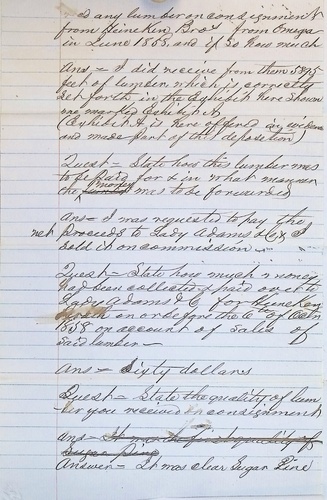 ed any lumber on consignment
from Heineken Bros from Omega
in June 1858, and if so how much
Ans = I did receive from them 5895
feet of lumber which is correctly
set forth in the Exhibit here shown
me marked Exhibit A
(Exhibit A is here offered in evidence
and made part of this deposition)
Quest = State how this lumber was
to be paid for & in what manner
the money was to be forwarded
Ans = I was requested to pay the
net proceeds to Lady Adams & Co I
sold it on commission
Quest = State how much money
had been collected & paid over to
Lady Adams & Co for
on or before the 6th of Octr
1858 on account of sales of
said lumber =
Ans = Sixty dollars
Quest = State the quality of lum
ber you received on consignment
Ans = It was the first quality of
Sugar Pine
Answer = It was clear Sugar Pine